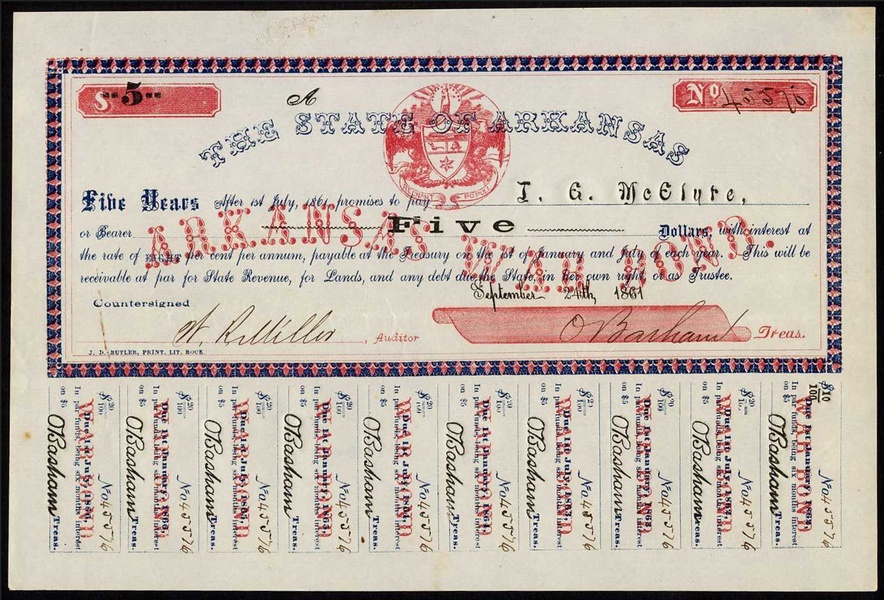 $ "5" A No. 45576
THE STATE OF ARKANSAS
REGNANT POPULI
Five Years After 1st July, 1861, promises to pay I. G. McElyre,
or Bearer Five Dollars, with interest at
the rate of EIGHT per cent per annum, payable at the Treasury on the 1st of January and July of each year. This will be
receivable at par for State Revenue, for Lands, and any debt due the State in her own right, or as Trustee.
ARKANSAS WAR BOND.
September 24th, 1861
Countersigned
W. R. Miller, Auditor O Basham Treas.
J. D. BUTLER, PRINT. LIT. ROCK.
$ 20/100 No 45576
Due 1st July,
In par funds, being six months interest
on $5 O Basham Treas.
WAR BOND
$ 20/100 No 45576
Due 1st January,
In par funds, being six months interest
on $5 O Basham Treas.
WAR BOND
$ 20/100 No 45576
Due 1st July,
In par funds, being six months interest
on $5 O Basham Treas.
WAR BOND
$ 20/100 No 45576
Due 1st January,
In par funds, being six months interest
on $5 O Basham Treas.
WAR BOND
$ 20/100 No 45576
Due 1st July,
In par funds, being six months interest
on $5 O Basham Treas.
WAR BOND
$ 20/100 No 45576
Due 1st January,
In par funds, being six months interest
on $5 O Basham Treas.
WAR BOND
$ 20/100 No 45576
Due 1st July,
In par funds, being six months interest
on $5 O Basham Treas.
WAR BOND
$ 20/100 No 45576
Due 1st January,
In par funds, being six months interest
on $5 O Basham Treas.
WAR BOND
$ 20/100 No 45576
Due 1st July,
In par funds, being six months interest
on $5 O Basham Treas.
WAR BOND
$ 10/100 No 45576
Due 1st January,
In par funds, being six months interest
on $5 O Basham Treas.
WAR BOND